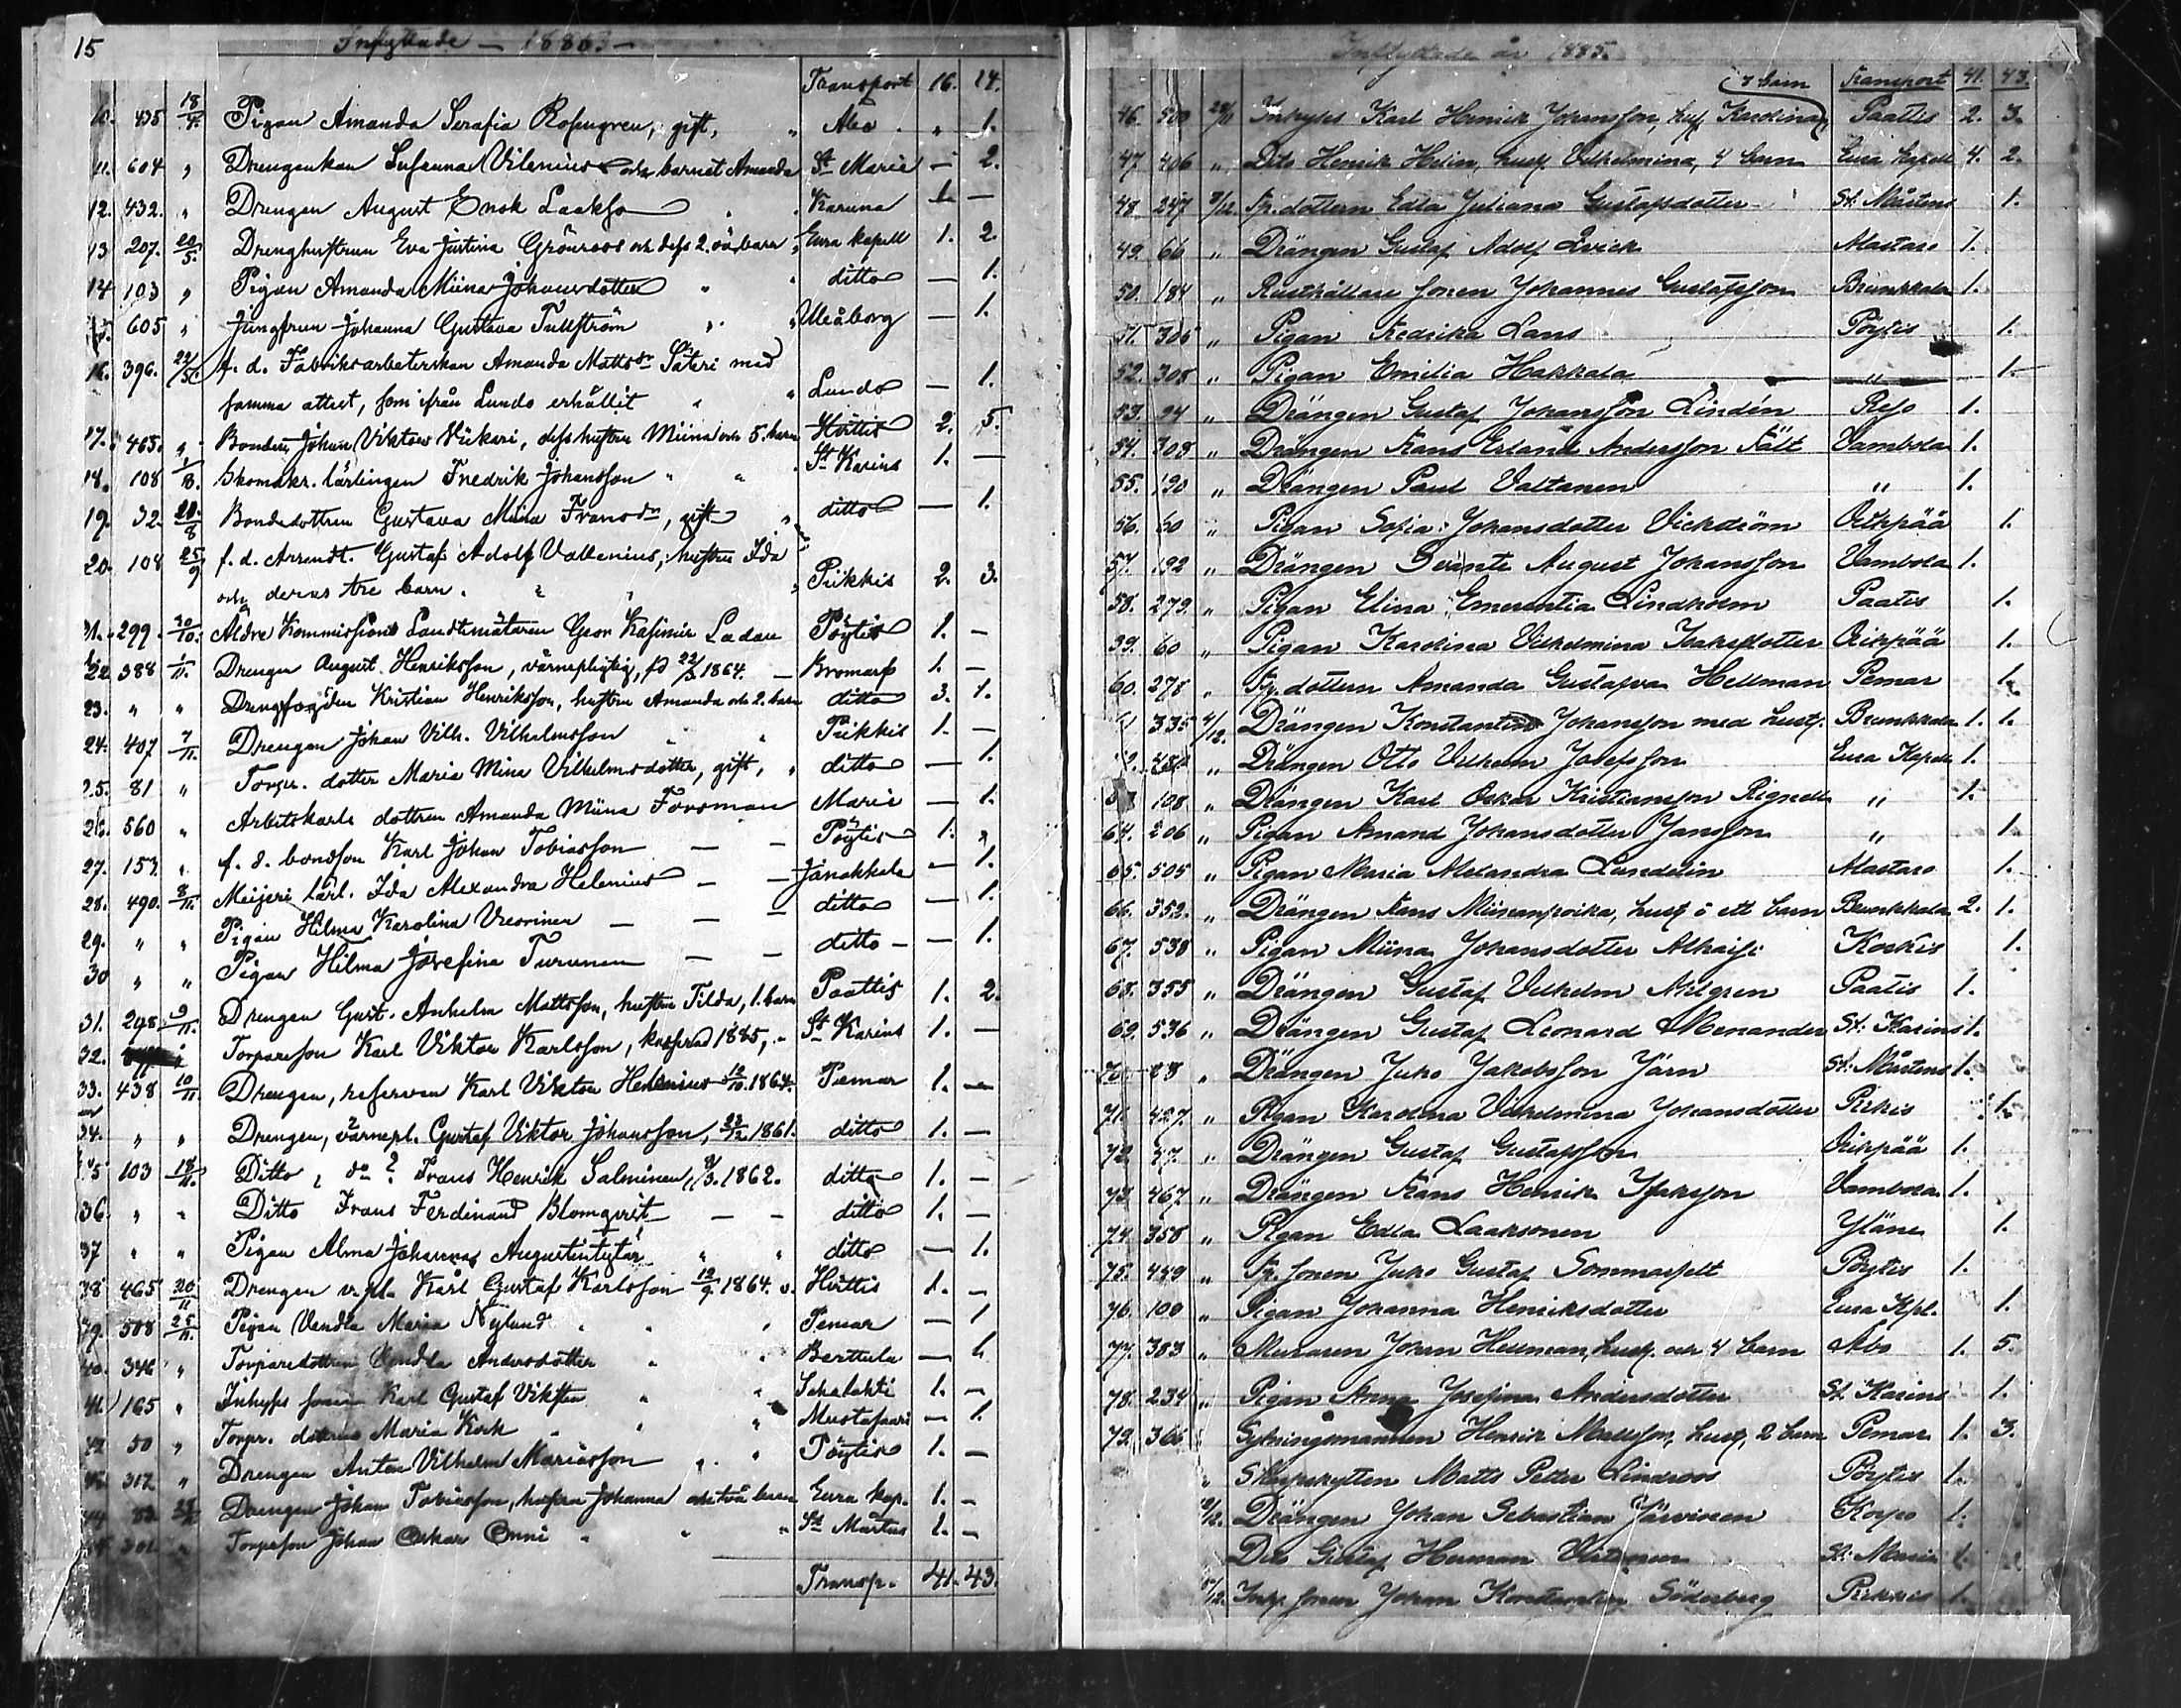 15
Inflyttade — 1885 —
Transport 16. 14.
10. 438 18/4. Pigan Amanda Serafia Rosengren, gift, " Åbo " 1.
11. 604 " Drengenkan Susanna Vilenius och barnet Amanda St Marie — 2.
12. 432. " Drengen August Enok Laakso " Karuna 1. —
13 207. 20/5. Drenghustrun Eva Justina Grönroos och dess 2. barn " Eura kapell 1. 2.
14 103 " Pigan Amanda Miina Johansdotter " " ditto — 1.
605 " Jungfrun Johanna Gustava Tullström " " Uleåborg — 1.
16. 396. 22/5. f. d. Fabriksarbeterskan Amanda Mattsdr Säteri med
samma attest, som ifrån Lundo erhållit " " Lundo — 1.
17. 465. " Bonden Johan Viktor Nikari, dess hustru Miina och 5. barn Hvittis 2. 5.
18. 108 Skomakr. lärlingen Fredrik Johansson " " St Karins 1. —
19. 32. 20/8 Bondedottren Gustava Miina Fransdr, gift " ditto — 1.
20. 108 25/9 f. d. Arrendt. Gustaf Adolf Vallenius, hustru Ida
och deras tre barn. " " Piikkis 2. 3.
21. 299. 30/10. Äldre Kommissions Landtmätaren Geor Kasimir Ladau Pöytis 1. —
22 388 1/11. Drengen August Henriksson, värnepligtig, fd 22/3 1864. — Bromarf 1. —
23. " " Drengfogden Kristian Henriksson, hustru Amanda och 2. barn ditto 3. 1.
24. 407 7/11. Drengen Johan Vilh. Vilhelmsson " " Piikkis 1. —
25. 81 " Torpr. dotter Maria Mina Vilhelmsdotter, gift, " ditto — 1.
26. 560 " Arbetskarls dottren Amanda Miina Forsman Marie — 1.
27. 153. " f. d. bondson Karl Johan Tobiasson — — Pöytis 1. "
28. 490. 8/11. Meijeri lärl. Ida Alexandra Helenius — — Janakkala — 1.
29. " " Pigan Hilma Karolina Vuorinen — — — ditto — 1.
30 " " Pigan Hilma Josefina Turunen — — ditto — — 1.
31. 298 9/11. Drengen Gust. Anshelm Mattsson, hustru Tilda, 1. barn Paattis 1. 2.
32. Torparesson Karl Viktor Karlsson, 1885, " St Karins 1. —
33. 438 10/11. Drengen, reserven Karl Viktor Helenius 12/10. 1864. Pemar 1. —
34. " " Drengen, värnepl. Gustaf Viktor Johansson, 23/12 1861. ditto 1. —
35 103 18/11. Ditto, do ? Frans Henrik Salminen, 8/3. 1862. ditto 1. —
36. " " Ditto Frans Ferdinand Blomqvist — — ditto 1. —
37 " " Pigan Alma Johannas Augustintytär " " ditto — 1.
38 465 20/11 Drengen v. pl. Karl Gustaf Karlsson 12/9 1864. Hvittis 1. —
39. 508 25/11. Pigan Vendla Maria Nylund " " Pemar — 1
40. 346 " Torparedottren Vendla Andersdotter " " Berttula — 1.
41. 165 " Inhyses sonen Karl Gustaf " " 1. —
42 50 " Torpr. dottren Maria Kork " " " Mustasaari — 1.
312 " Drengen Anton Vilhelm Mariasson " " Pöytis 1. —
44 Drengen Johan Tobiasson, hustru Johanna och två barn Eura kap. 1. —
301. " Torpsson Johan Oskar Onni " " " St Mårtens 1. —
Transp. 41. 43.
Inflyttade år 1885.
3 barn Transport 41. 43.
46. 500 Inhyses Karl Henrik Johansson, hust. Karolina, Paattis 2. 3.
47 406 " Dito Henrik Helin, hust. Vilhelmina, 4 barn Eura kapell 4. 2.
48 247 Tp. dottern Edla Juliana Gustafsdotter St. Mårtens 1.
49. 66 " Drängen Gustaf Adolf Qvick Alastaro 1.
50. 184 " Rusthållare sonen Johannes Gustafsson Brunkkala 1.
51. 305 " Pigan Fredrika Lans Pöytis 1.
52. 308 " Pigan Emilia Hakkala " 1.
53. 24 " Drängen Gustaf Johansson Lindén Reso 1.
54. 308 " Drängen Frans Erland Andersson Fält Vambola 1.
55. 190 " Drängen Paul Valtanen " 1.
56. 60 " Pigan Sofia Johansdotter Vickström Oripää 1.
57. 192 " Drängen Svante August Johansson Vambola 1.
58. 279. " Pigan Elina Emerentia Lindholm Paatis 1.
59. 60 " Pigan Karolina Vilhelmina Isaksdotter Oripää 1.
60. 278 " Tp. dottern Amanda Gustafva Hellman Pemar 1.
335 4/12. Drängen Konstantin Johansson med hust. Brunkkala 1. 1.
" Drängen Otto Vilhelm Josefsson Eura Kapell 1.
108 " Drängen Karl Oskar Kristiansson Rignell " 1.
64. 206 " Pigan Amand Johansdotter Jansson " 1.
65. 505 " Pigan Maria Alexandra Lundelin Alastaro 1.
66. 352. " Drängen Frans Miinanpoika, hust o ett barn Brunkkala 2. 1.
67. 538 " Pigan Miina Johansdotter Alhaisi Korkis 1.
68. 355 " Drängen Gustaf Vilhelm Ahlgren Paatis 1.
69. 536 " Drängen Gustaf Leonard Menander St. Karins 1.
70. 28 " Drängen Juho Jakobsson Järn St. Mårtens 1.
71. 427. " Pigan Karolina Vilhelmina Johansdotter Pikis 1.
72. 47. " Drängen Gustaf Gustafsson Oripää 1.
73. 467. " Drängen Frans Henrik Isaksson Vambola 1.
74. 358 " Pigan Edla Laaksonen Yläne 1.
75. 449 " Tp. sonen Juho Gustaf Sommarfelt Pöytis 1.
76. 100 " Pigan Johanna Henriksdotter Eura Kpl. 1.
77. 383 " Muraren Johan Hellman, hust. och 4 barn Åbo 1. 5.
78. 234 " Pigan Anna Josefina Andersdotter St. Karins 1.
79. 366 Henrik Mattsson, hust, 2 barn Pemar 1. 3.
" Matts Petter Lindroos Pöytis 1.
Drängen Johan Sebastian Järvinen Korpo 1.
Dito Gustaf Herman Virtanen St. Marie 1.
Inhy. sonen Johan Konstantin Söderberg Piikkis 1.